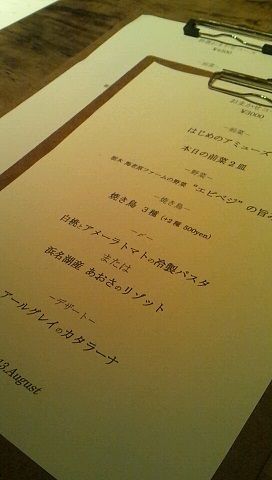 ¥3000
－前菜－
はじめのアミューズ
本日の前菜２皿
－野菜－
栃木 海老原ファームの野菜 “エビベジ”の旨み
－焼き鳥－
焼き鳥 3種 (+2種 500yen)
－〆－
白桃とアメーラトマトの冷製パスタ
または
浜名湖産 あおさのリゾット
－デザート－
アールグレイのカタラーナ
13.August